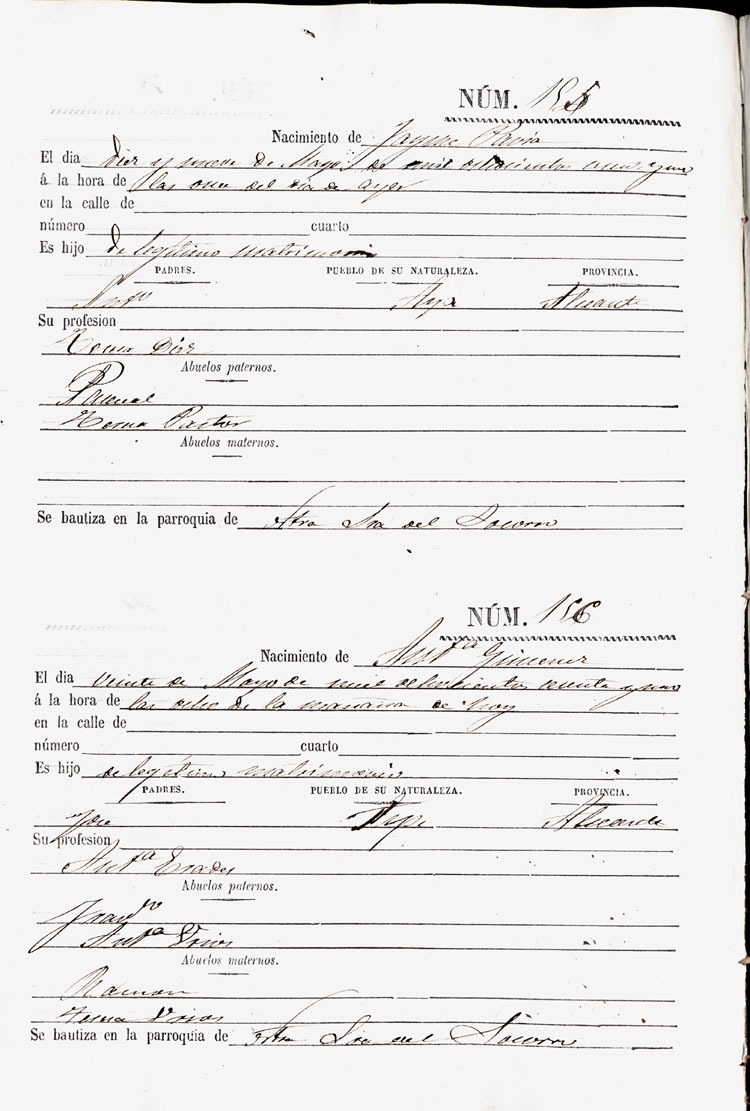 NÚM. 155
Nacimiento de Jayme Pavia
El dia diez y nueve de Mayo de mil ochocientos y uno
á la hora de las once del dia de ayer
en la calle de
número cuarto
Es hijo de legítimo matrimonio
PADRES. PUEBLO DE SU NATURALEZA. PROVINCIA.
Antº Aspe Alicante
Su profesion
Abuelos paternos.
Pascual
Pastor
Abuelos maternos.
Se bautiza en la parroquia de Ntra Sra del Socorro
NÚM. 156
Nacimiento de Antª Gimenez
El dia veinte de Mayo de mil ochocientos y uno
á la hora de las ocho de la mañana de hoy
en la calle de
número cuarto
Es hijo de legitimo matrimonio
PADRES. PUEBLO DE SU NATURALEZA. PROVINCIA.
Jose Aspe Alicante
Su profesion
Antª
Abuelos paternos.
Antª
Abuelos maternos.
Ramon
Se bautiza en la parroquia de Ntra Sra del Socorro